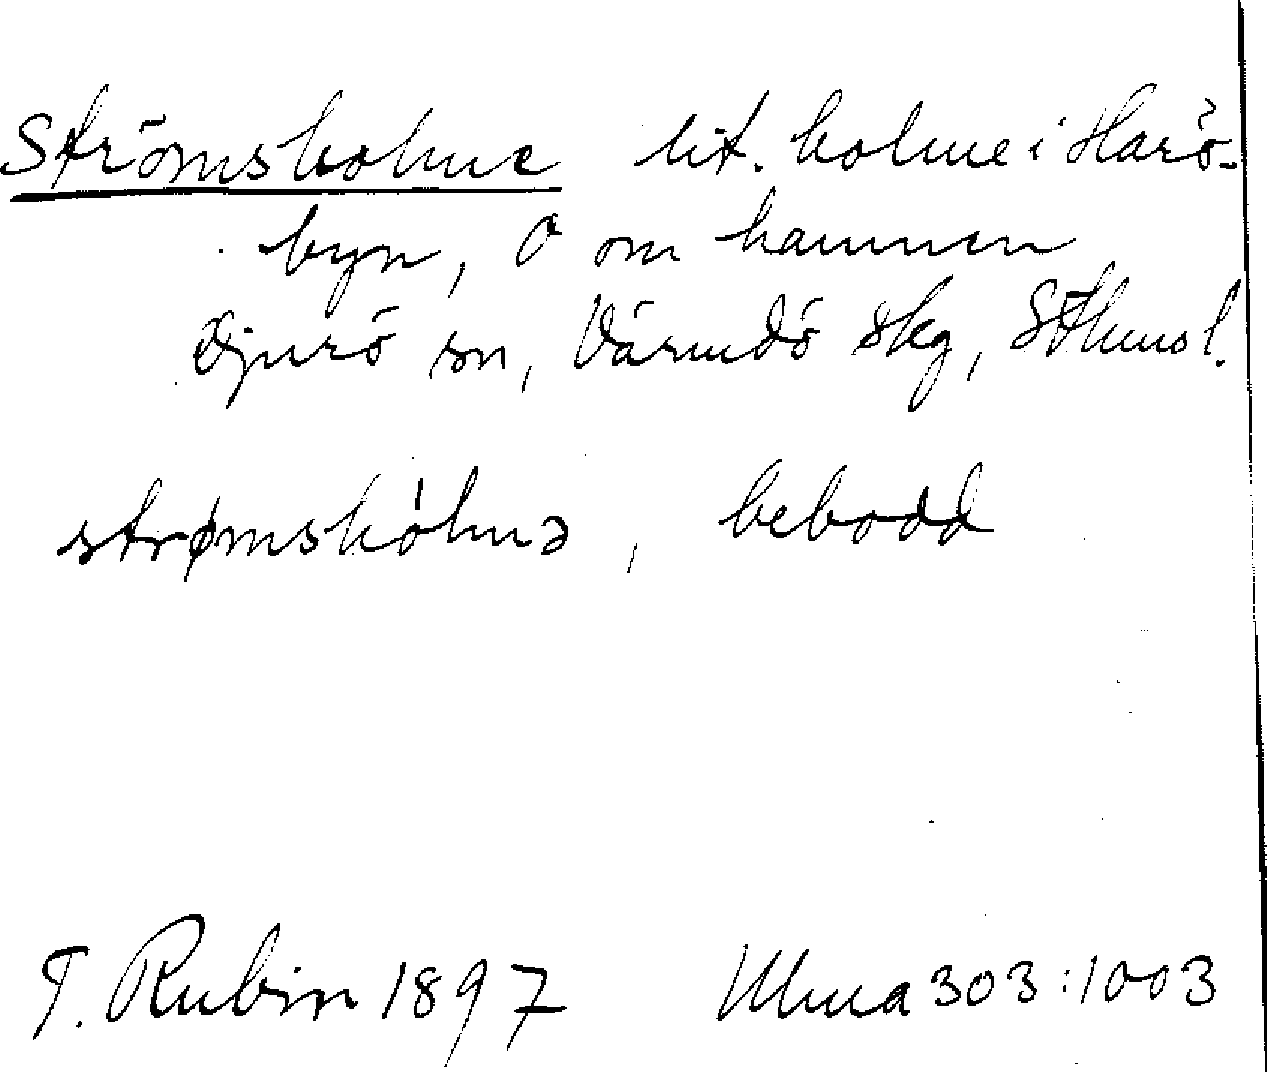 Strömsholme lit. holme i Harö-
byn, O om hamnen
Djurö sn, Värmdö skg, Sthmsl.
strømshólmə, bebodd
T. Rubin 1897 Ulma 303:1003